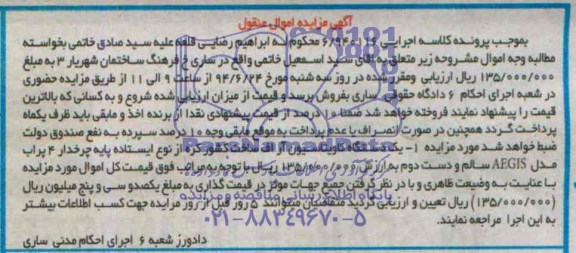 آگهی مزایده اموال منقول
بموجب پرونده کلاسه اجرایی محکوم له ابراهیم رضایی قلعه علیه سید صادق خاتمی بخواسته
مطالبه وجه اموال مشروحه زیر متعلق به آقای سید اسمعیل خاتمی واقع در ساری خ فرهنگ ساختمان شهریار ۳ به مبلغ
۱۳۵/۰۰۰/۰۰۰ ریال ارزیابی ومقرر شده در روز سه شنبه مورخ ۹۴/۶/۲۴ از ساعت ۹ الی ۱۱ از طریق مزایده حضوری
در شعبه اجرای احکام ۶ دادگاه حقوقی ساری بفروش برسد و قیمت از میزان ارزیابی شده شروع و به کسانی که بالاترین
قیمت را پیشنهاد نمایند فروخته خواهد شد ضمنا ۱۰ درصد از قیمت پیشنهادی نقدا از برنده اخذ و مابقی باید ظرف یکماه
پرداخت گردد همچنین در صورت انصراف یا عدم پرداخت به موقع مابقی وجه ۱۰ درصد سپرده به نفع صندوق دولت
ضبط خواهد شد مورد مزایده ۱- یک دستگاه کاورلمینیون از افست ساخت کشور از نوع ایستاده پایه چرخدار ۴ پراب
مدل AEGIS سالم و دست دوم به ارزش ۱۳۵/۰۰۰/۰۰۰ ریال با توجه به مراتب فوق قیمت کل اموال مورد مزایده
با عنایت به وضعیت ظاهری و با در نظر گرفتن جمیع جهات موثر در قیمت گذاری به مبلغ یکصدو سی و پنج میلیون ریال
(۱۳۵/۰۰۰/۰۰۰) ریال تعیین و ارزیابی گردید متقاضیان میتوانند ۵ روز قبل از روز مزایده جهت کسب اطلاعات بیشتر
به این اجرا مراجعه نمایند.
۰۲۱-۸۸۳۴۹۶۷۰-۵
دادورز شعبه ۶ اجرای احکام مدنی ساری